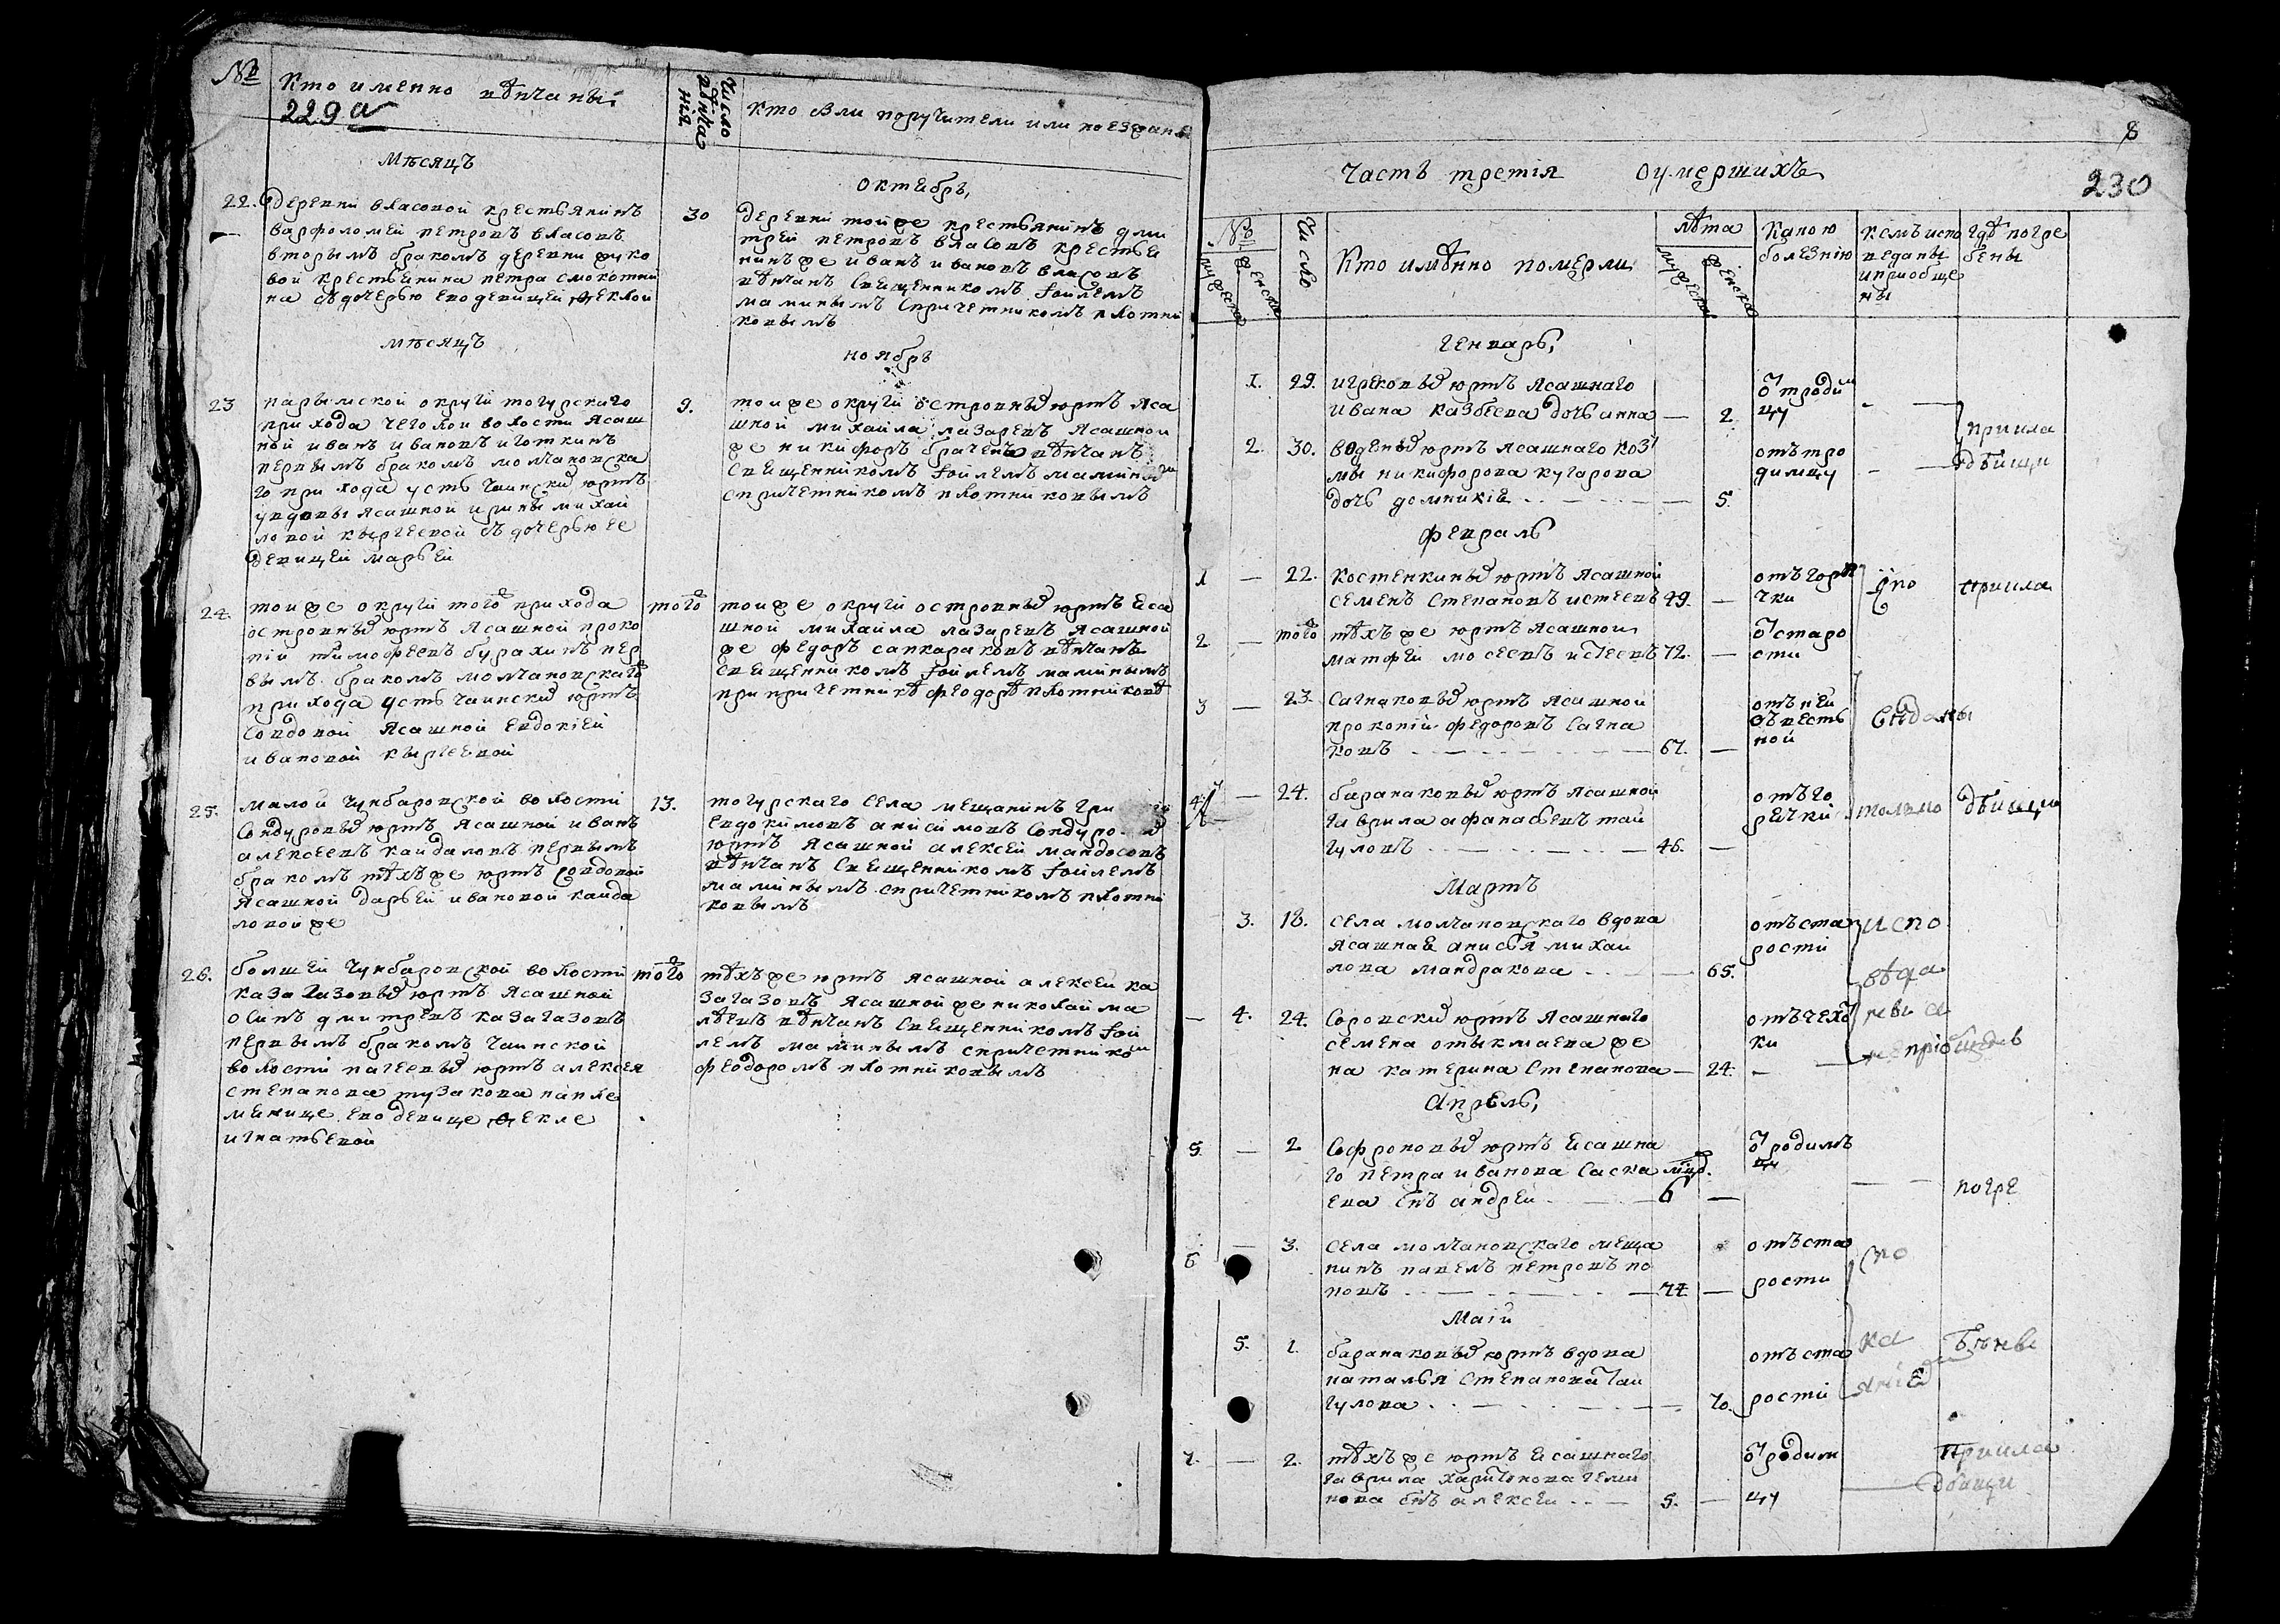 №
Кто именно вѣнчаны
229 а
Число вѣнчания
Кто были поручители или поезжаны
Мѣсяцъ
Октябрь,
22. деревни власовой крестьянинъ
варфоломей петровъ власовъ
вторымъ бракомъ деревни жуко
вой крестьянина петра смокотни
на съ дочерью ево девицей феклой
30
деревни тойже крестьянинъ дми
трей петровъ власовъ крестья
нинъ же иванъ ивановъ власовъ
вѣнчанъ священникомъ Іоилемъ
маминымъ спричетникомъ плотни
ковымъ
мѣсяцъ
ноябрь
23
нарымской округи тогурскаго
прихода чеголой волости ясаш
ной иванъ ивановъ иготкинъ
первымъ бракомъ молчановска
го прихода усть чаински юртъ
у вдовы ясашной ирины михай
ловой кыргеевой съ дочерью ее
девицей марьей
9.
тоиже округи островных юртъ яса
шной михайла лазаревъ ясашной
же никифоръ вѣнчанъ
священникомъ Іоилемъ маминым
спричетникомъ плотниковымъ
24.
тоиже округи того прихода
островных юртъ ясашной проко
пій тимофеевъ бурахинъ пер
вымъ бракомъ молчановскаго
прихода усть чаински юртъ
совдовой ясашной евдокіей
ивановой кыргеевой
того
тоиже округи островных юртъ яса
шной михайла лазаревъ ясашной
же федоръ санкараковъ вѣнчанъ
священникомъ Іоилемъ маминымъ
при причетникѣ феодорѣ плотниковѣ
25.
малой чунбаровской волости
сондровых юртъ ясашной иванъ
алексеевъ кайдаловъ первымъ
бракомъ тѣхъже юртъ совдовой
ясашной дарьей ивановой кайда
ловой же
13.
тогурскаго села мещанинъ гри
евдокимовъ анисимовъ
юртъ ясашной алексей мандосовъ
вѣнчанъ священникомъ Іоилемъ
маминымъ спричетникомъ плотни
ковымъ
26.
болшей чунбаровской волости
казагазовых юртъ ясашной
осипъ дмитревъ казагазовъ
первымъ бракомъ чаинской
волости нагеевых юртъ алексея
степанова тузакова на пле
менице ево девице фекле
игнатьевой
того
тѣхъже юртъ ясашной алексей ка
загазовъ ясашной же николай ма
вѣнчанъ священникомъ Іои
лемъ маминымъ спричетником
феодоромъ плотниковымъ
8
230
Часть третія оумершихъ
№
мужеска
женска
Число
Кто имянно померли
лѣта
мужеска
женска
Какою
болезнію
кемъ испо
веданы
и приобще
ны
гдѣ погре
бены
Генварь,
1. 29. игрековых юртъ ясашнаго
ивана казбеева дочь анна — 2.
от роди
цу
2. 30. юртъ ясашнаго коз
мы никифорова кугарова
дочь домникія — 5.
отъ ро
димцу
приκла
дбищи
Февраль
1 — 22. костенкиных юртъ ясашной
семенъ степановъ истеевъ 49. —
отъ горя
чки
при кла
2 — того тѣхъ же юртъ ясашной
матфей мосеевъ истеевъ 72. —
от старо
сти
3 — 23. сагнаковых юртъ ясашной
прокопій федоровъ сагна
ковъ — 67. —
отъ неи
звѣст
ной
4 — 24. баранаковых юртъ ясашной
гаврила афанасьевъ тай
гуловъ — 46. —
отъ го
рячки
только
дбищи
Мартъ
3. 18. села молчановскаго вдова
ясашная анисья михай
лова мандракова — 65.
отъ ста
рости
испо
— 4. 24. соровских юртъ ясашнаго
семена отыкмаева же
на катерина степанова — 24. —
отъ чехо
тки
Апрель,
5. — 2. софроновых юртъ ясашна
го петра иванова саска мцр.
ева снъ андрей — 6 —
от родимъ
цу
погре
6 — 3. села молчановскаго меща
нинъ павелъ петровъ по
повъ — 74 —
отъ ста
рости
Маій
5. 1. баранаковых юртъ вдова
наталья степанова тай
гулова — 70.
отъ ста
рости
7. — 2. тѣхъ же юртъ ясашнаго
гаврила харитонова
снъ алексей — 5. —
от родим
цу
при кла
дбищи